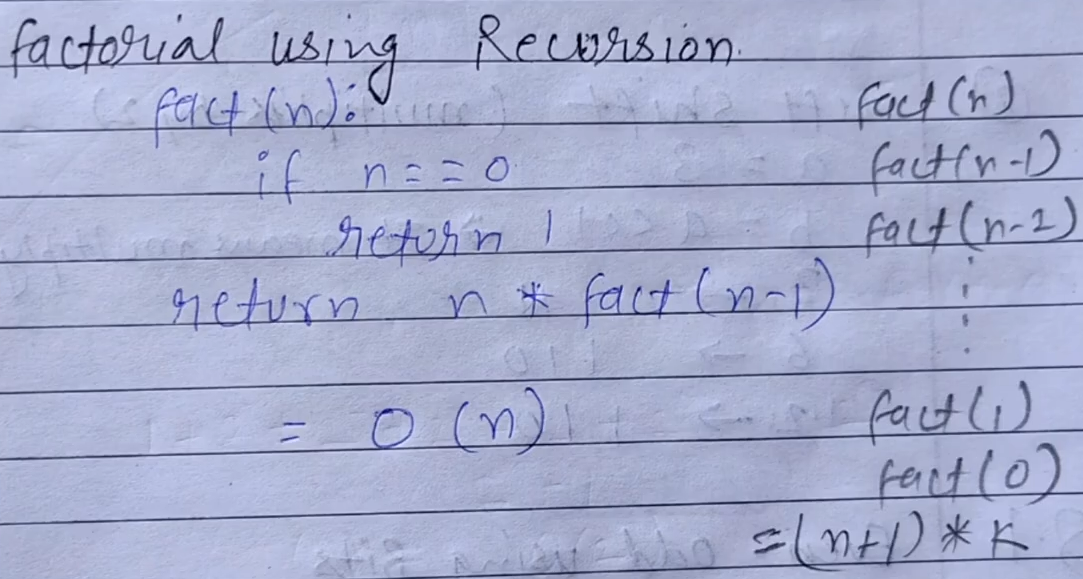 factorial using Recursion.
fact(n):
if n==0
return 1
return n * fact(n-1)
= O(n)
fact(n)
fact(n-1)
fact(n-2)
fact(1)
fact(0)
=(n+1)*K